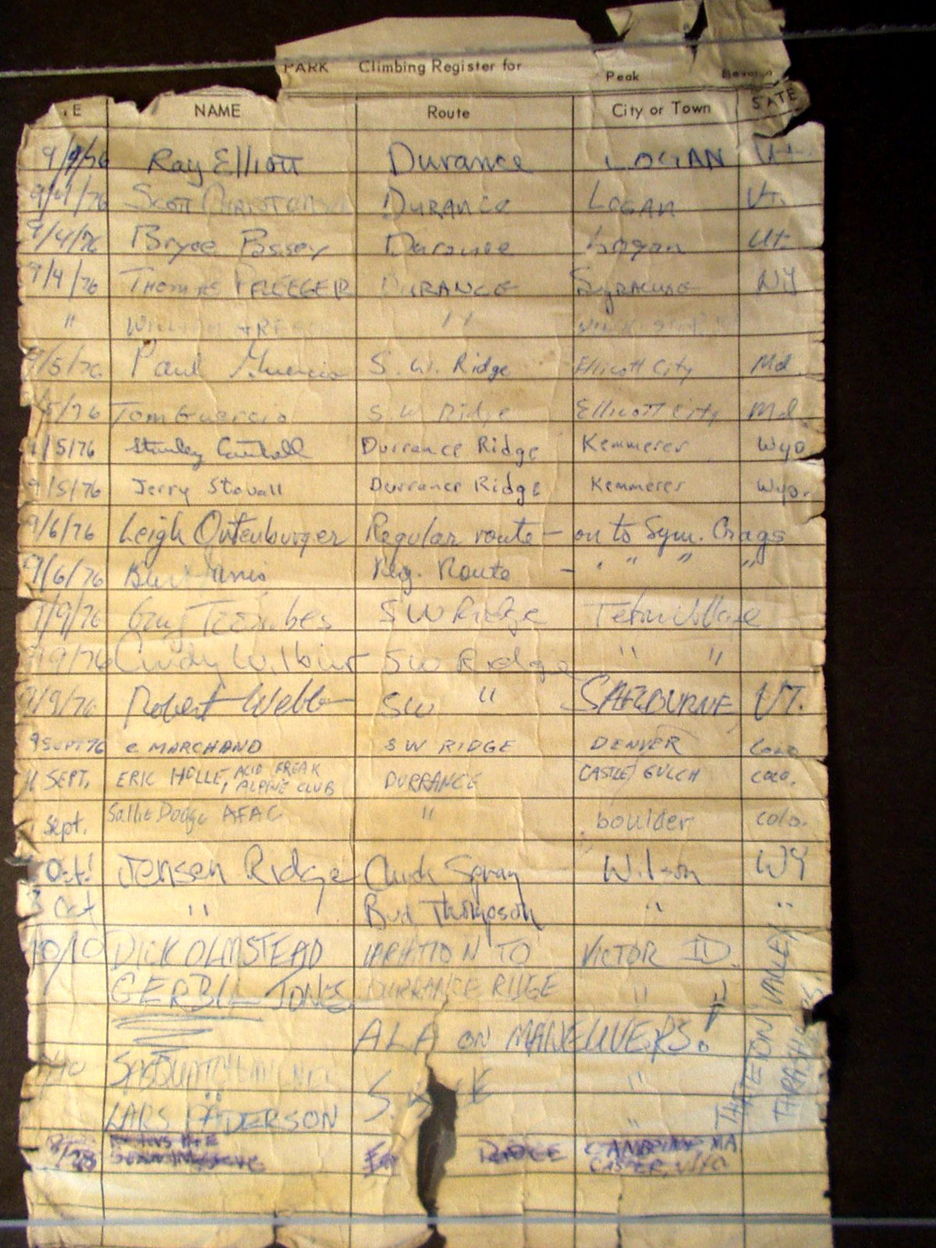 PARK Climbing Register for Peak
NAME Route City or Town STATE
9/9/76 Ray Elliott Durance LOGAN Ut.
9/4/76 Scott DURANCE LOGAN UT.
9/4/76 Bryce Passey Durance Logan Ut.
9/4/76 THOMAS PFLEGER DURANCE Syracuse NY
" WILLIAM "
9/5/76 Paul Guercio S.W. Ridge Ellicott City Md.
9/5/76 Tom Guercio S W Ridge Ellicott City Md.
9/5/76 Stanley Durrance Ridge Kemmerer Wyo
9/5/76 Jerry Stovall Durrance Ridge Kemmerer Wyo.
9/6/76 Leigh Ortenburger Regular route – on to Sym. Crags
9/6/76 Reg. Route – " " "
9/9/76 Greg SW Ridge Teton Village
9/9/76 Cindy Wilbur SW Ridge " "
9/9/76 Robert Webb SW " VT.
9 SEPT 76 C MARCHAND SW RIDGE DENVER Colo
11 SEPT. ERIC HOLLE, ACID FREAK ALPINE CLUB DURRANCE CASTLE GULCH COLO.
Sept. Sallie Dodge AFAC " boulder colo.
Oct Jensen Ridge Chuck Spray Wilson WY
3 Oct " Bud Thompson " "
10/10 DICK OLMSTEAD VARIATION TO VICTOR ID.
GERBIL JONES DURRANCE RIDGE "
ALA ON MANEUVERS!
"
LARS PÄDERSON "
THE TETON VALLEY
THRASHERS!
RIDGE MA
CASPER, WYO